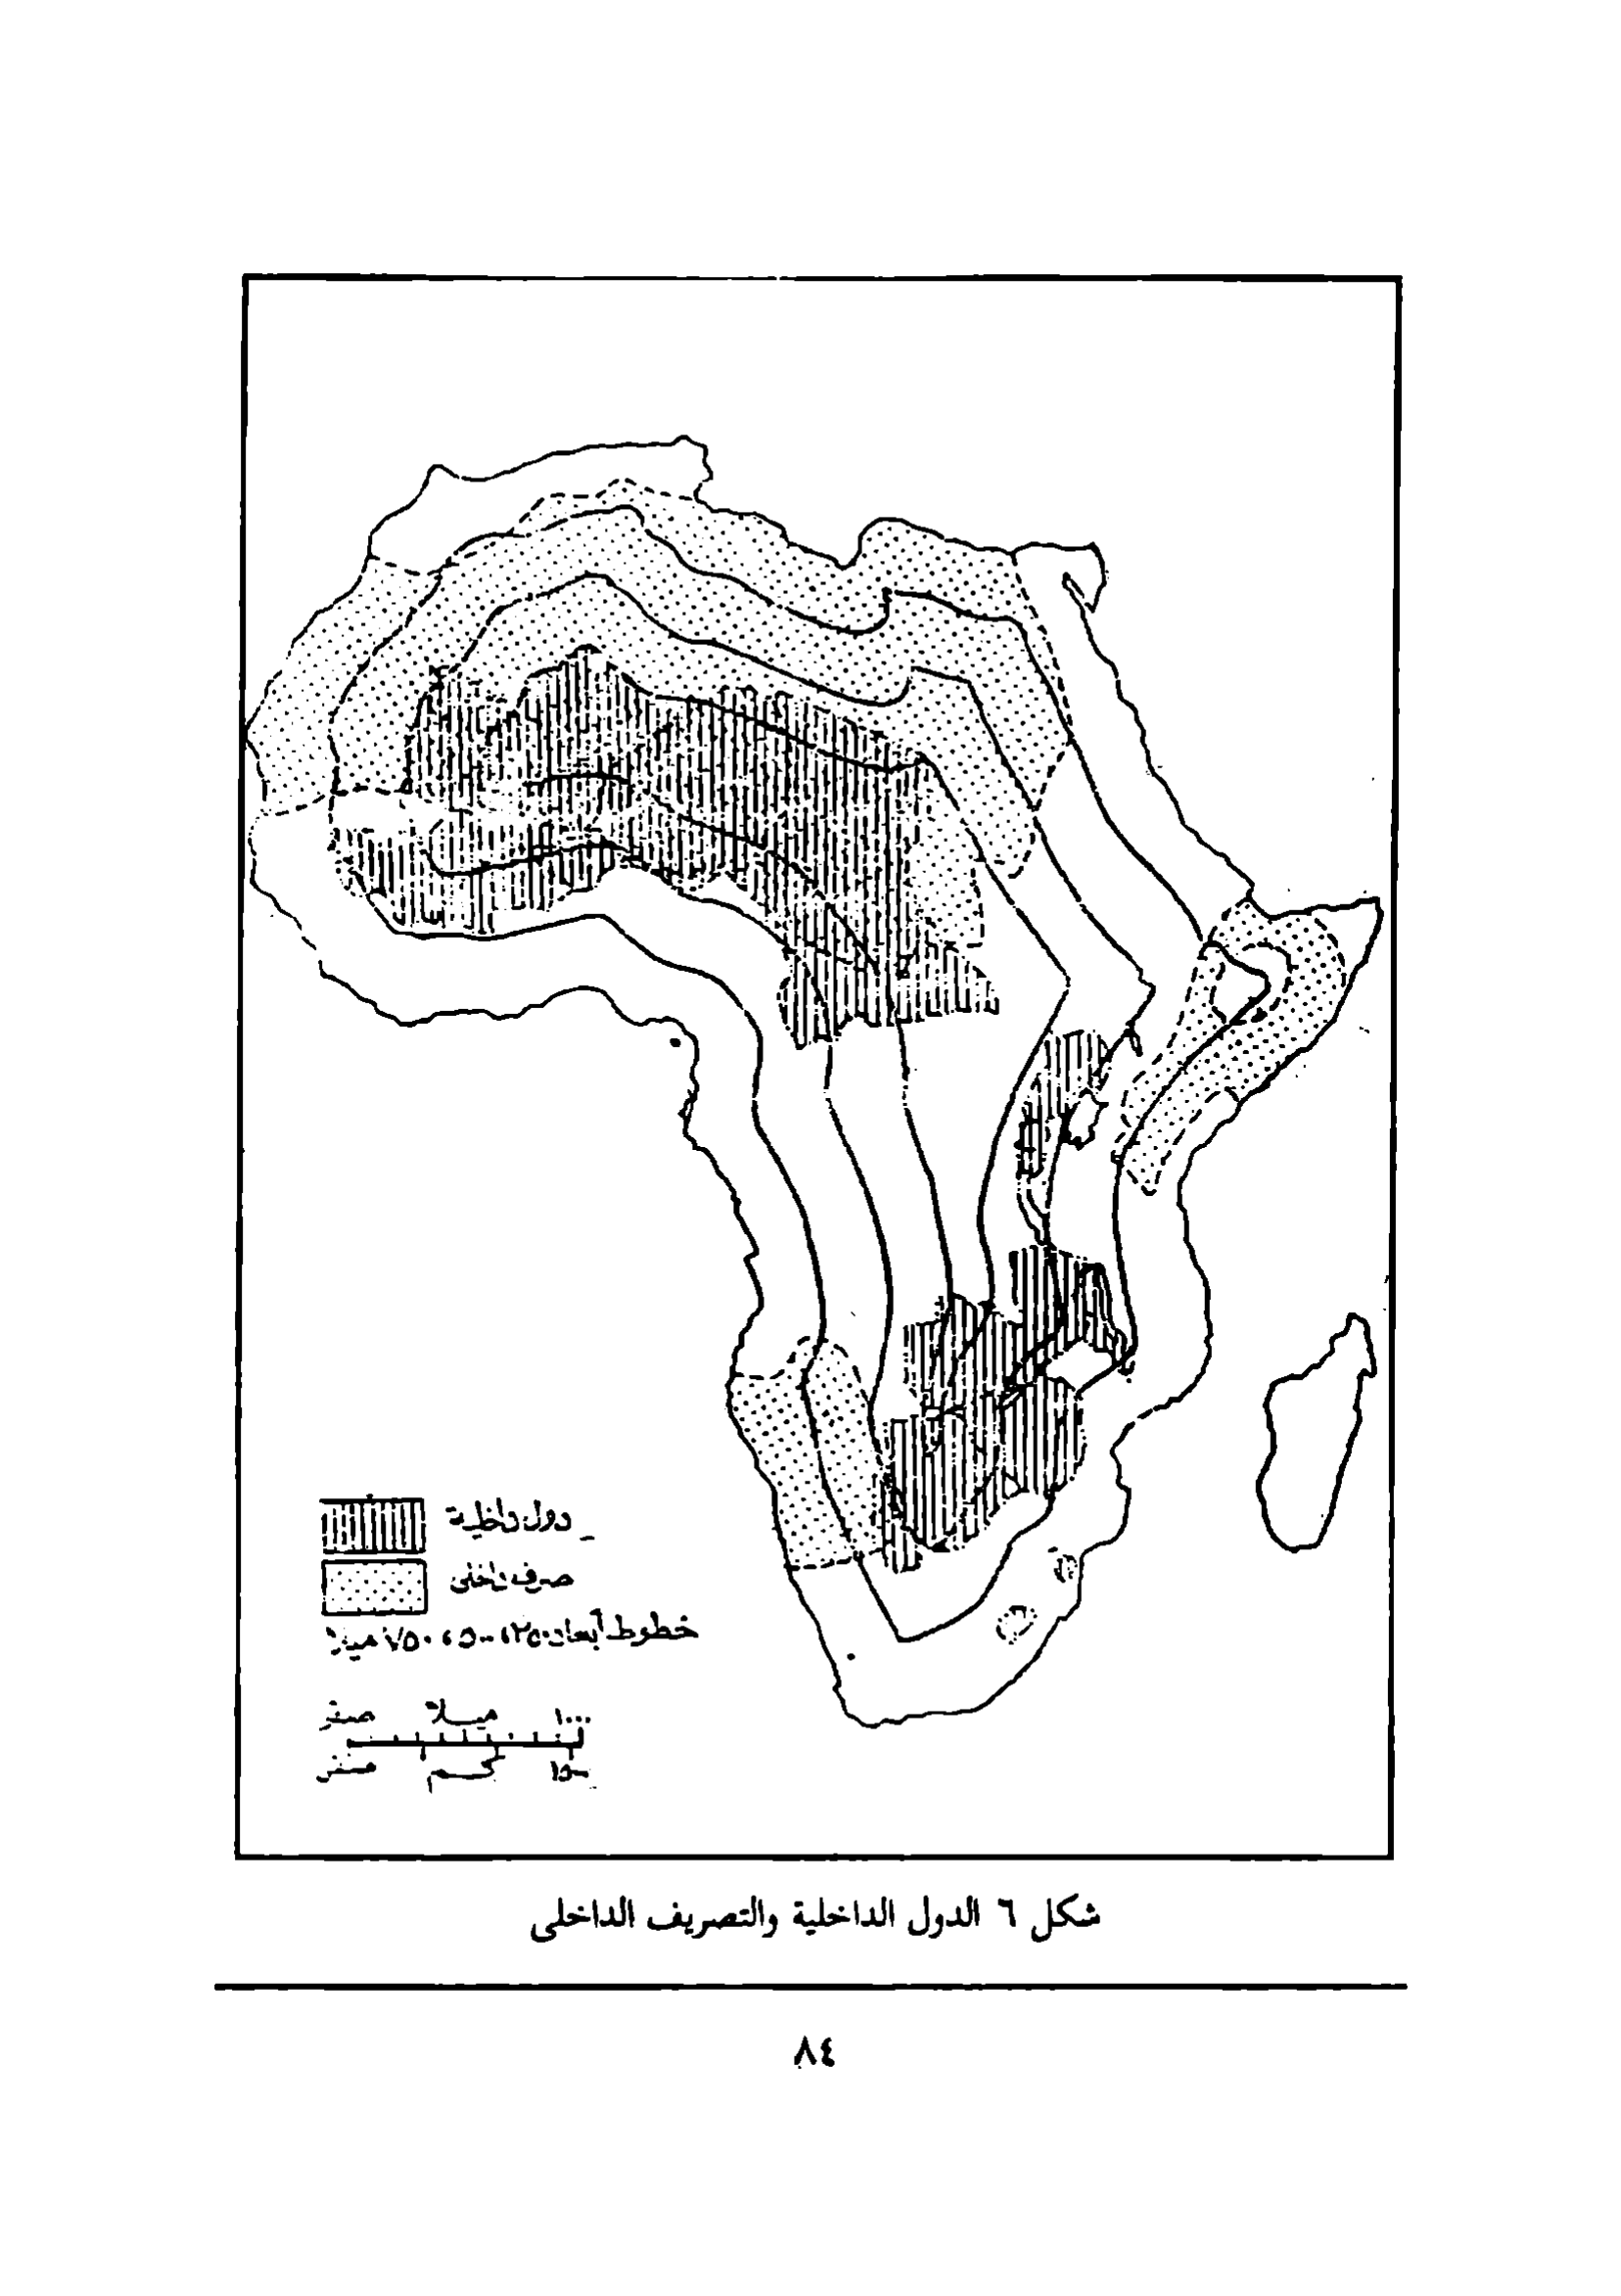 دول داخلية
صرف داخلى
خطوط أبعاد ٢٥٠، ٥٠٠، ٧٥٠ ميلا
صفر ميلا ١٠٠٠
صفر كم ١٥٠٠
شكل ٦ الدول الداخلية والتصريف الداخلى
٨٤